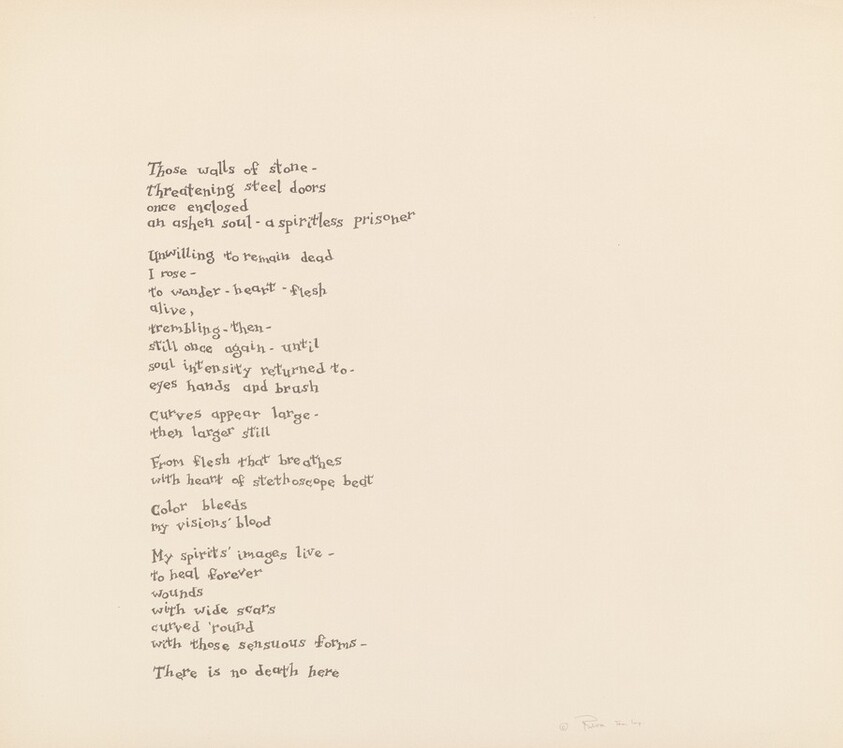 Those walls of stone -
threatening steel doors
once enclosed
an ashen soul - a spiritless prisoner
Unwilling to remain dead
I rose -
to wander - heart - flesh
alive,
trembling - then -
still once again - until
soul intensity returned to -
eyes hands and brush
Curves appear large -
then larger still
From flesh that breathes
with heart of stethoscope beat
Color bleeds
my visions' blood
My spirits' images live -
to heal forever
wounds
with wide scars
curved 'round
with those sensuous forms -
There is no death here
©